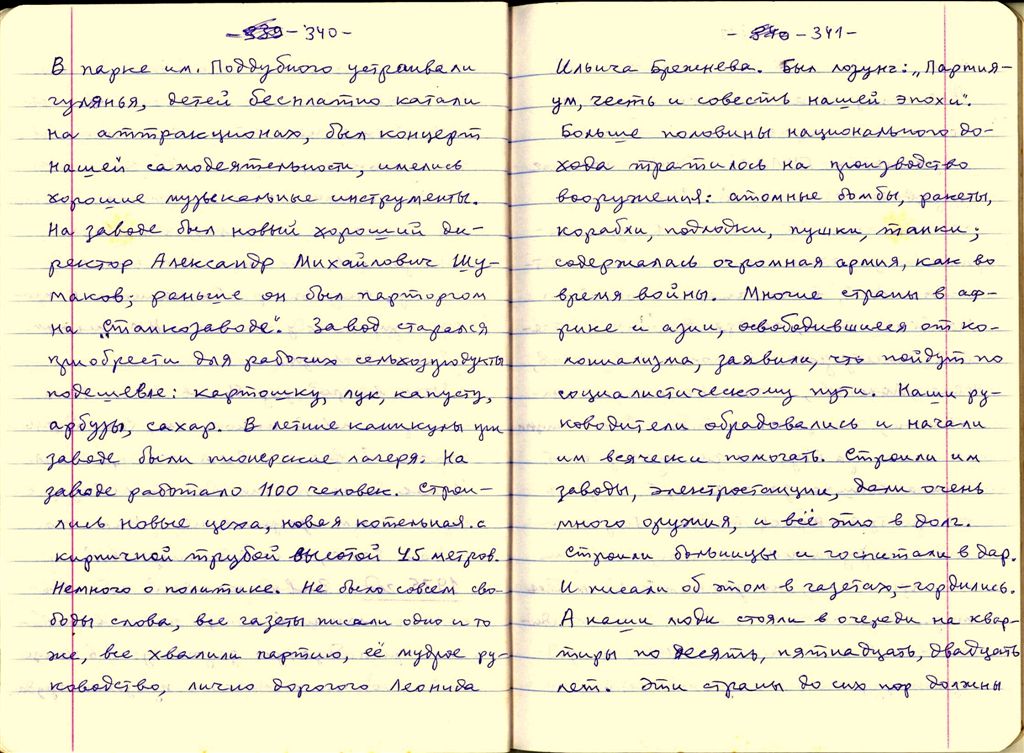 - 339 - 340 -
В парке им. Поддубного устраивали
гулянья, детей бесплатно катали
на аттракционах, был концерт
нашей самодеятельности, имелись
хорошие музыкальные инструменты.
На заводе был новый хороший ди-
ректор Александр Михайлович Шу-
маков; раньше он был парторгом
на „Станкозаводе“. Завод старался
приобрести для рабочих сельхозпродукты
подешевле: картошку, лук, капусту,
арбузы, сахар. В летние каникулы при
заводе были пионерские лагеря. На
заводе работало 1100 человек. Строи-
лись новые цеха, новая котельная с
кирпичной трубой высотой 45 метров.
Немного о политике. Не было совсем сво-
боды слова, все газеты писали одно и то
же, все хвалили партию, её мудрое ру-
ководство, лично дорогого Леонида
- 340 - 341 -
Ильича Брежнева. Был лозунг: „Партия -
ум, честь и совесть нашей эпохи“.
Больше половины национального до-
хода тратилось на производство
вооружения: атомные бомбы, ракеты,
корабли, подлодки, пушки, танки;
содержалась огромная армия, как во
время войны. Многие страны в аф-
рике и азии, освободившиеся от ко-
лониализма, заявили, что пойдут по
социалистическому пути. Наши ру-
ководители обрадовались и начали
им всячески помогать. Строили им
заводы, электростанции, дали очень
много оружия, и всё это в долг.
Строили больницы и госпитали в дар.
И писали об этом в газетах, – гордились.
А наши люди стояли в очереди на квар-
тиры по десять, пятнадцать, двадцать
лет. Эти страны до сих пор должны